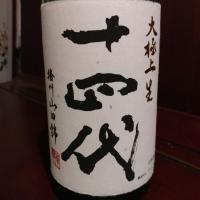 大極上生
十四代
播州山田錦